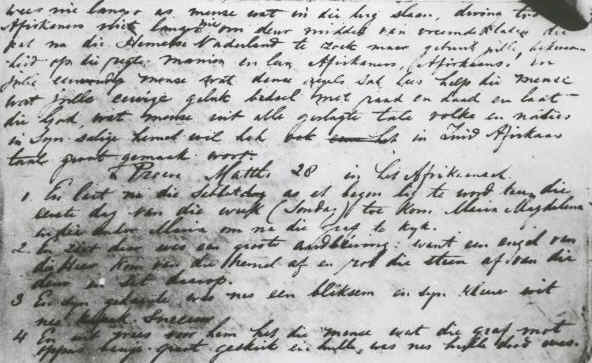 wees nie langer as mense wat in die lug slaan, dwing
Afrikaners niet langer nie om deur middel van vreemde
na die Hemelse Vaderland te zoek maar gebruik julle
op die regte manier en leer Afrikaners, Afrikaans! en
julle mense wat dese regels sal lees help die mense
wat julle euwige geluk bedoel met raad en daad en laat
die God, wat mense uit alle geslagte tale volke en nasies
in syn salige hemel wil heb ook in Zuid Afrikaans
taal groot gemaak wort.
'n Proeve Matth: 28 in het Afrikaansch.
1 En laat na die Sabbatdag as et begon lig te word teug die
eerste dag van die week (Sondag) toe kom Maria Magdalena
en die ander Maria om na die graf te kyk.
2 En daar was een groote aardbewing: want een engel van
die Heer kom van die hemel af en rol die steen af van die
deur en set daarop.
3 En syn gedaante was nes een bliksem en syn kleur wit
nes Sneeuw.
4 En uit vrees voor hem het die mense wat die graf mot
oppas bange geskrik en hulle was nes dood was.